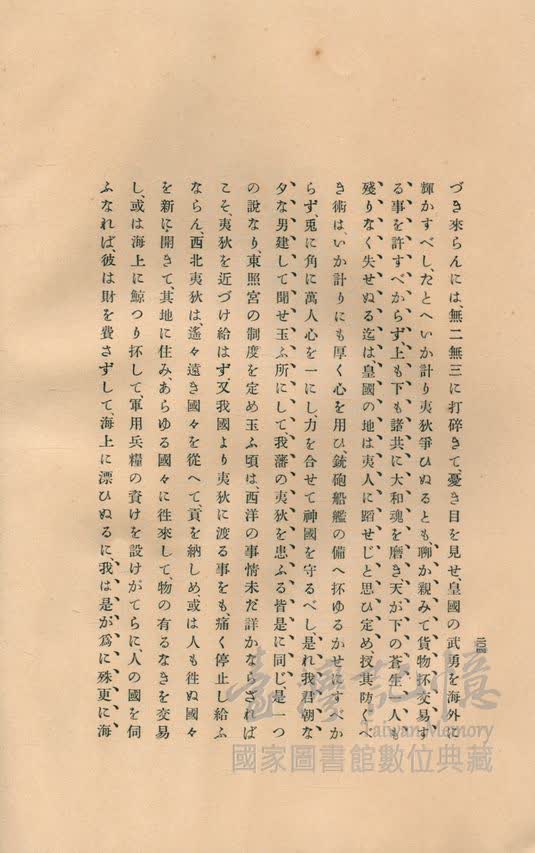 づき來らんには、無二無三に打碎きて、憂き目を見せ、皇國の武勇を海外に
輝かすべし、たとへいか計り夷狄爭ひぬるとも、聊か親みて貨物抔交易す
る事を許すべからず、上も下も諸共に大和魂を磨き天が下の蒼生一人も
殘りなく失せぬる迄は、皇國の地は夷人に蹈せじと思ひ定め、扨其防ぐべ
き術は、いか計りにも厚く心を用ひ、銃砲船艦の備へ抔ゆるかせにすべか
らず、兎に角に萬人心を一にし、力を合せて神國を守るべし、是れ我君朝な
夕な男建して聞せ玉ふ所にして、我藩の夷狄を患ふる皆是に同じ、是一つ
の說なり、東照宮の制度を定め玉ふ頃は、西洋の事情未だ詳かならざれば
こそ、夷狄を近づけ給はず、又我國より夷狄に渡る事をも、痛く停止し給ふ
ならん、西北夷狄は、遙々遠き國々を從へて、貢を納しめ、或は人も徃ぬ國々
を新に開きて、其地に住み、あらゆる國々に徃來して、物の有るなきを交易
し、或は海上に鯨つり抔して、軍用兵糧の資けを設けがてらに、人の國を伺
ふなれば、彼は財を費さずして、海上に漂ひぬるに、我は是が爲に殊更に海
二四
臺灣記憶
Taiwan Memory
國家圖書館數位典藏